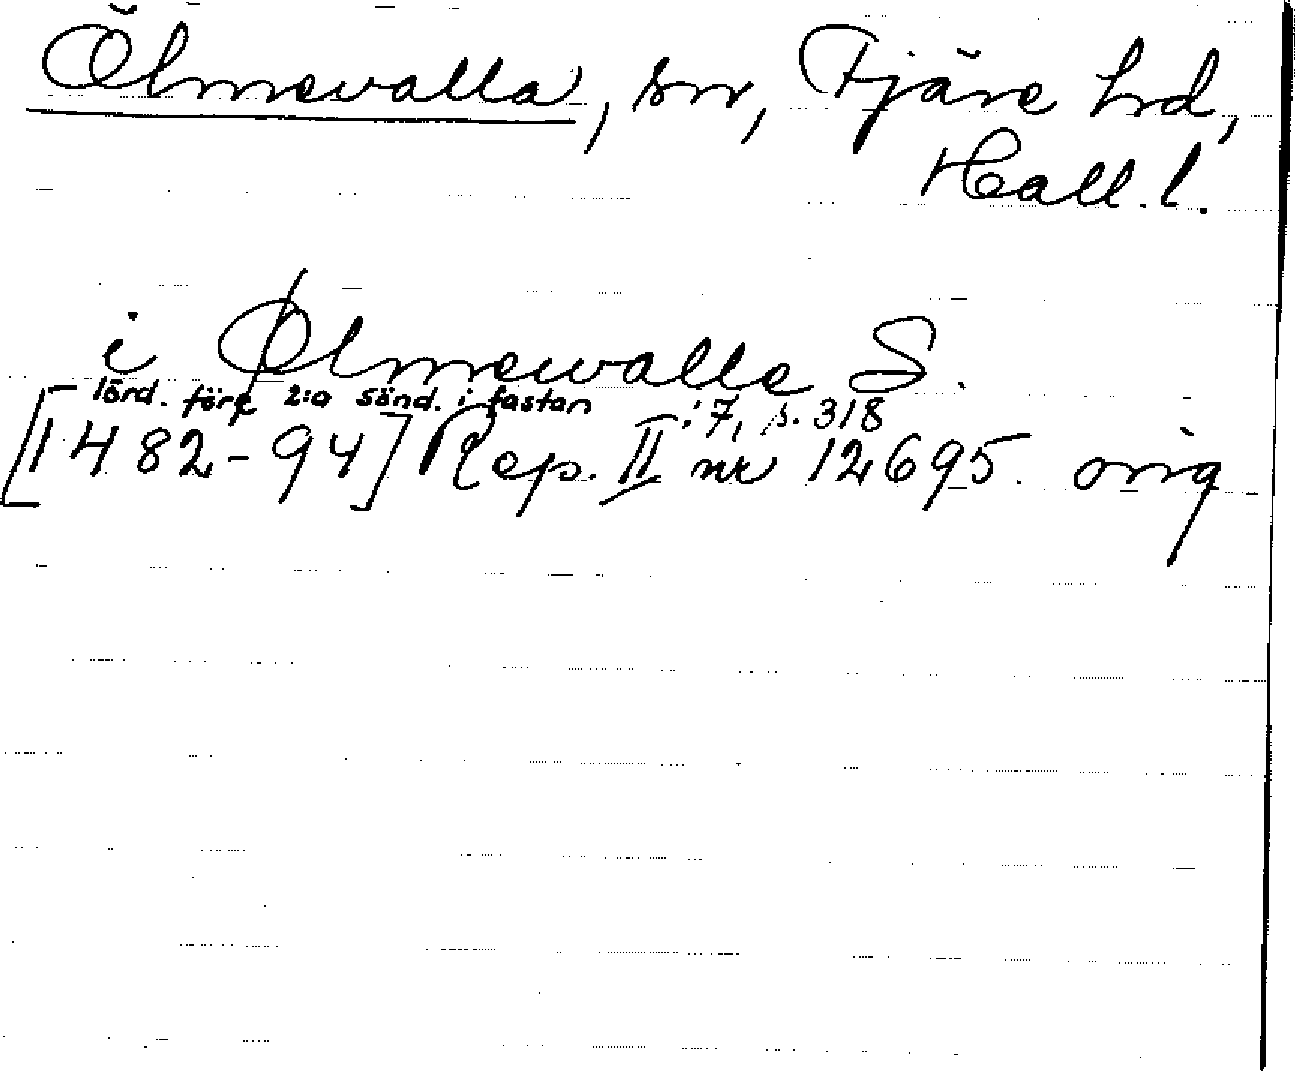 Ölmevalla, sn, Fjäre hd,
Hall. l.
i Ølmewalle S.
lörd. före 2:a sönd. i fastan
[1482-94] Rep. II :7, s. 318 nr 12695. orig